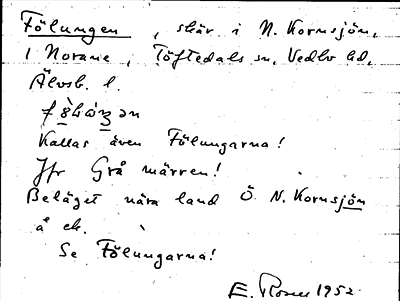 Fölungen, skär i N. Kornsjön,
i Norane, Töftedals sn, Vedbo hd,
Älvsb. l.
Kallas även Fölungarna!
Jfr Grå märren!
Beläget nära land Ö N. Kornsjön
å ek.
Se Fölungarna!
E. 1952